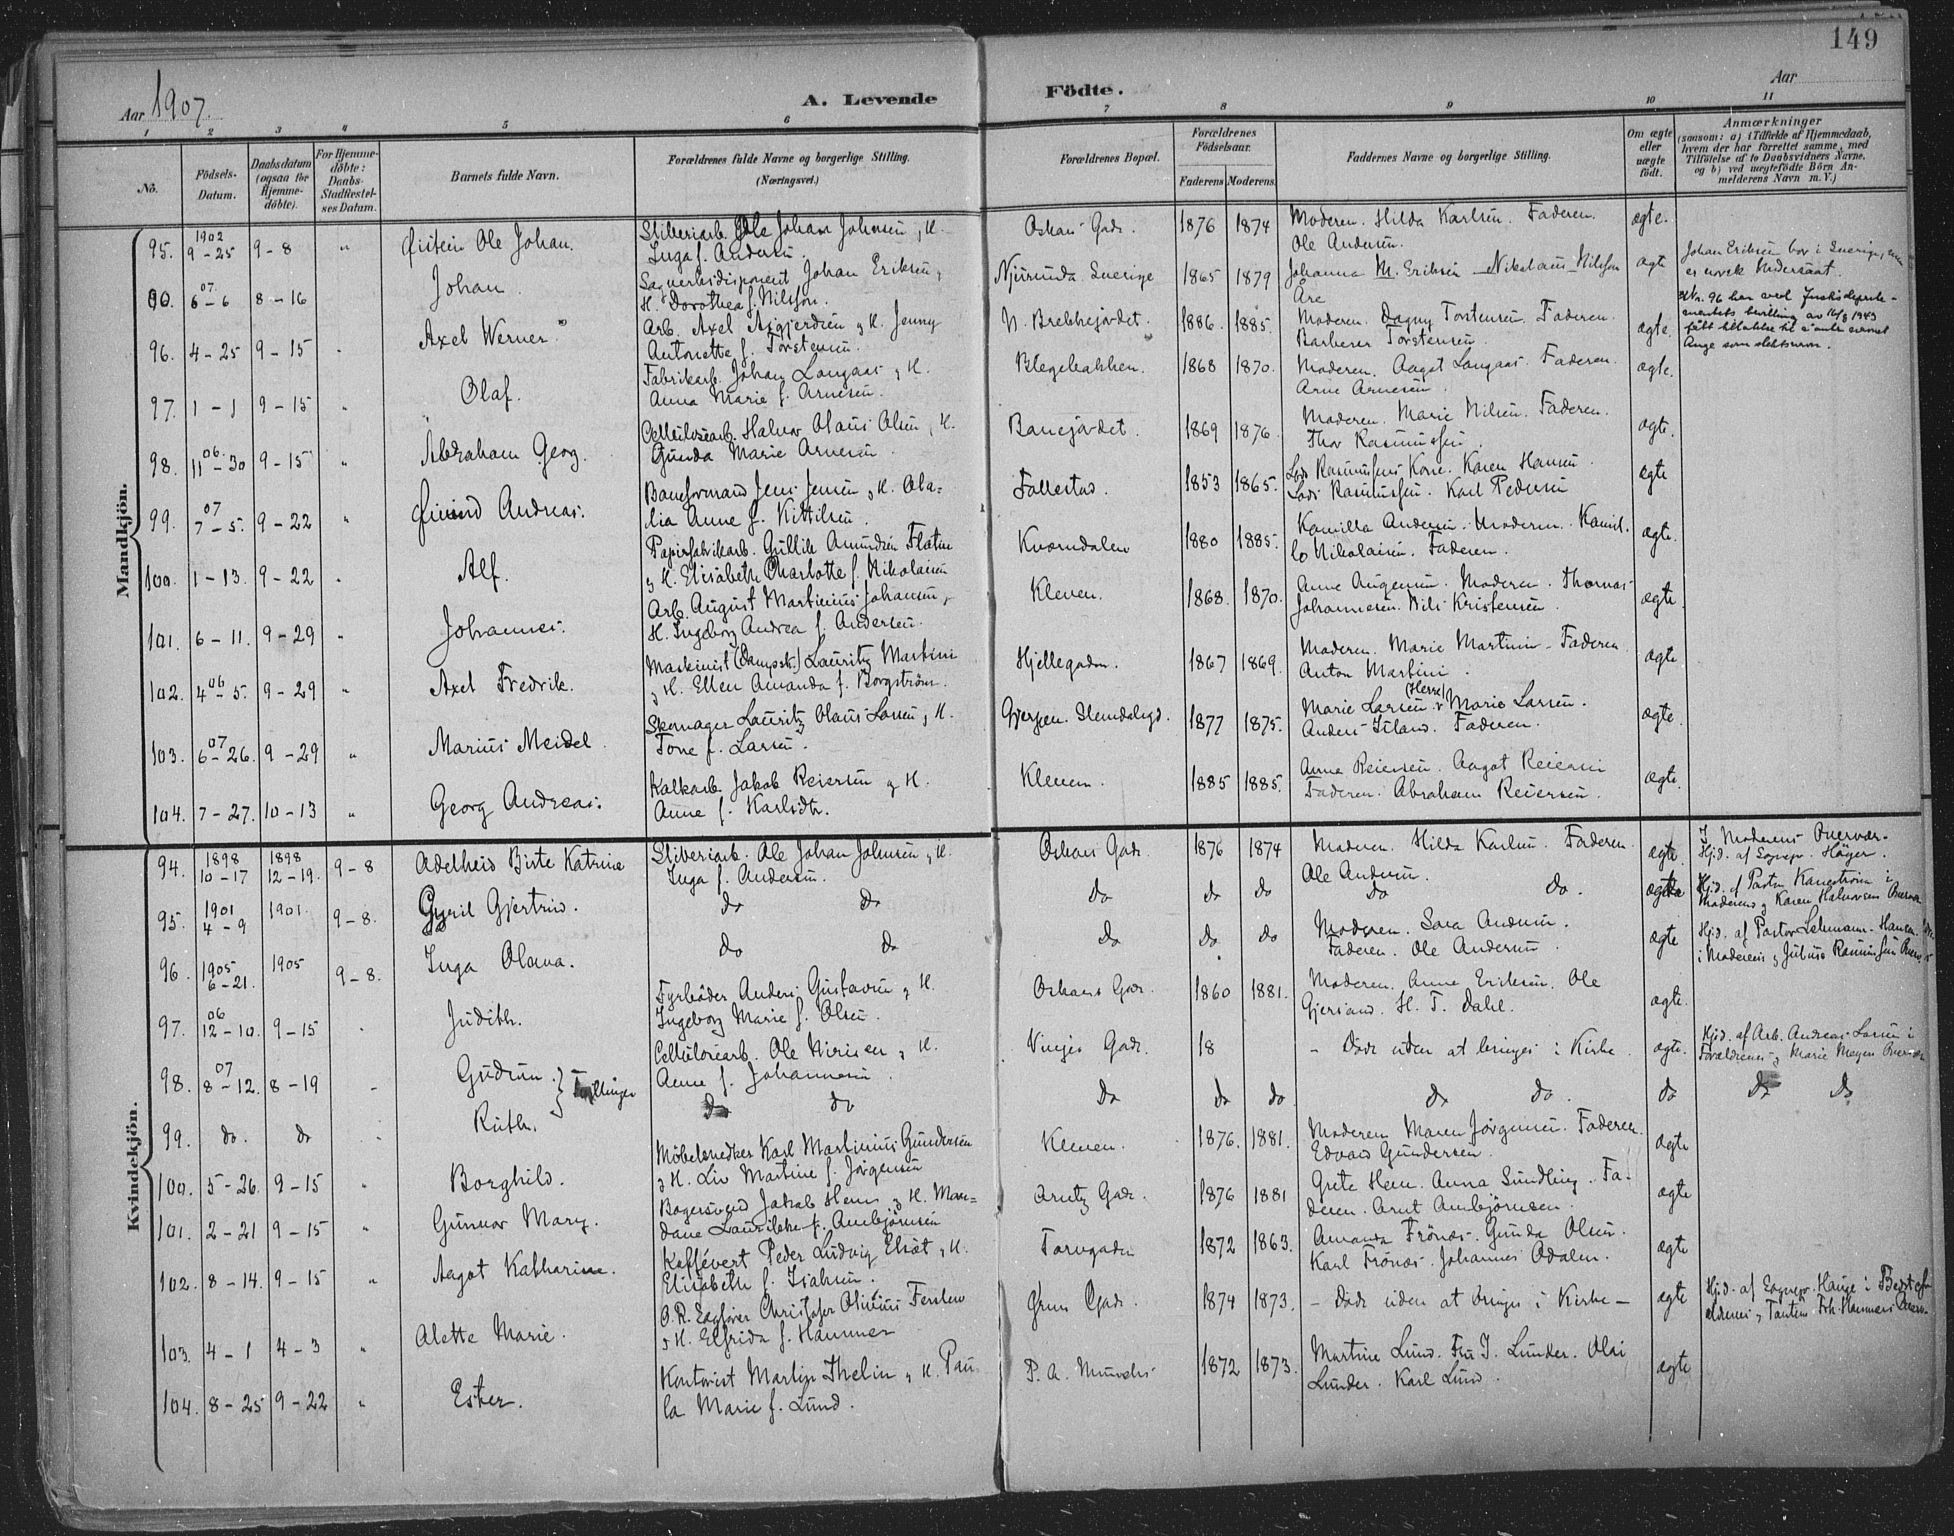 149
Aar 1907.
A. Levende Födte.
Aar
1 2 3 4 5 6 7 8 9 10 11
No.
Födsels-Datum.
Daabsdatum (ogsaa for Hjemmedöbte).
For Hjemmedöbte: Daabs-Stadfæstelses Datum.
Barnets fulde Navn.
Forældrenes fulde Navne og borgerlige Stilling. (Næringsvei.)
Forældrenes Bopæl.
Forældrenes Födselsaar.
Faderens Moderens
Faddernes Navne og borgerlige Stilling.
Om ægte eller uægte födt.
Anmærkninger
(saasom: a) i Tilfælde af Hjemmedaab, hvem der har forrettet samme, med Tilföielse af to Daabsvidners Navne, og b) ved uægtefödte Börn Anmelderens Navn m. V.)
Mandkjön.
95. 1902 9-25 9-8 " Øistein Ole Johan. Sliberiarb. Ole Johan Johnsen, H. Inga f. Andersen. Oskars Gade. 1876 1874 Moderen. Hilda Karlsen. Faderen. Ole Andersen. ægte.
07 6-6 8-16 Johan. Johan Eriksen, H. Dorothea f. Nilsson. Njurunda Sverige 1865 1879 Johanna M. Eriksen Nikolaus Nilsson Åre ægte Johan Eriksen bor i Sverige, men er norsk Undersaat.
96. 4-25 9-15 Axel Werner Arb. Axel Asgjerdsen & H. Jenny Antonette f. Torstensen. N. Brekkejordet. 1886. 1885. Moderen. Dagny Torstensen. Faderen. Torstensen. ægte. Nr. 96 har ved Justisdeparte-
mentets bevilling av 16/8 1943
fått tillatelse til å anta navnet
Ange som slektsnavn.
97. 1-1 9-15 " Olaf. Fabrikarb. Johan Langaas & H. Anna Marie f. Arnesen. Blegebakken. 1868 1870. Moderen. Aagot Langaas. Faderen. Arne Arnesen. ægte.
98. 06 11-30 9-15 " Abraham Georg. Cellulosearb. Halvor Olaus Olsen, H. Gunda Marie Arnesen Banejordet. 1869 1876. Moderen. Marie Nilsen. Faderen. Thor Rasmussen. ægte.
99. 07 7-5. 9-22 " Øivind Andreas. Baneformand Jens Jensen & H. Ola-
lia Anne f. Kittilsen. Follestad. 1853 1865. Rasmussens Kone. Karen Hansen. Rasmussen. Karl Pedersen ægte
100. 1-13. 9-22 Alf. Papirfabrikarb. Gullik Amundsen Flatin & H. Elisabeth Charlotte f. Nikolaisen Kværndalen 1880 1885. Kamilla Andersen. Moderen. Kamil-
lo Nikolaisen. Faderen. ægte.
101. 6-11. 9-29 " Johannes. Arb. August Martinius Johansen, H. Ingeborg Andrea f. Andersen. Kleven. 1868. 1870. Anne Moderen. Thomas Johannesen. Nils Kristensen. ægte.
102. 06 4-5. 9-29 " Axel Fredrik. Maskinist (Dampsk.) Lauritz Martini & H. Ellen Amanda f. Borgström. Hjellegaden. 1867 1869. Moderen. Marie Martini. Faderen. Anton Martini. ægte
103. 07 6-26. 9-29 " Marius Meidel. Skomager Lauritz Olaus Larsen, H. Tone f. Larsen. Gjerpen. 1877 1875. Marie Larsen (Herre), Marie Larsen. Anders Faderen. ægte.
104. 7-27. 10-13 " Georg Andreas. Kalkarb. Jakob Reiersen & H. Anne f. Karlsdtr. Kleven. 1885 1885. Anne Reiersen. Aagot Reiersen Faderen. Abraham Reiersen. ægte.
Kvindekjön.
94. 1898 10-17 1898 12-19. 9-8 Adelheid Birte Katrine Sliberiarb. Ole Johan Johnsen & H. Inga f. Andersen. Oskars Gade. 1876 1874 Moderen. Hilda Karlsen. Faderen. Ole Andersen. ægte. I Moderens Overvær. Hjd. af Sognepr. Höyer.
95. 1901 4-9 1901. 9-8. Gyril Gjertrud. Do Do Do Do Do Do Do. ægte Hjd. af Pastor i Moderens & Karen Halvorsens Overvær
96. 1905 6-21. 1905 9-8. Inga Olava. Do Do Do Do Do Moderen. Sara Andersen. Faderen. Ole Andersen. ægte Hjd. af Pastor Lehmann-Hansen i Moderens & Julius Rasmussens Overv.
97. 06 12-10. 9-15 Judith. Fyrböder Anders Gustavsen & H. Ingeborg Marie f. Olsen. Oskars Gade. 1860 1881. Moderen. Anne Eriksen. Ole Gjersand. H. T. Dahl. ægte.
98. 07 8-12. 8-19 Gudrun. } Tvillinger Cellulosearb. Ole & H. Anne f. Johannesen. Vinjes Gade. 18 - Døde uden at bringes i Kirke. ægte. Hjd. af Arb. Andreas Larsen i Forældrenes & Marie Meyers Overvær
99. do. do Ruth. Do Do Do Do Do. Do Do. Do Do Do
100. 5-26. 9-15 Borghild. Möbelsnedker Karl Martinius Gundersen & H. Liv Martine f. Jörgensen Kleven. 1876. 1881. Moderen Maren Jörgensen. Faderen. Edvard Gundersen. ægte
101. 2-21 9-15 " Gunvor Mary. Bagersvend Jakob Hem & H. Man-
dane Laurikke f. Ambjörnsen Arntz Gade. 1876 1881 Grete Hem. Anna Sundling. Fa-
deren. Arnt Ambjörnsen. ægte
102. 8-14. 9-15 " Aagot Katharine. Kaffévert Peder Ludvig & H. Elisabeth f. Isaksen. Torvgaden 1872 1863. Amanda Frönæs. Gunda Olsen. Karl Frönæs. Johannes Odalen. ægte
103. 4-1 4-3 " Alette Marie. O.R. Sagförer Christofer Olivius & H. Elfrida f. Hammer Gade. 1874 1873. - Døde uden at bringes i Kirke - ægte Hjd. af Sognepr. Hauge i Bedstefor-
ældrenes & Tanten Frk Hammers Overv.
104. 8-25 9-22 " Ester. Kontorist Martin Thelin & H. Pau-
la Marie f. Lund. P. A. Munchs 1872 1873. Martine Lund. Fru J. Lunder. Olai Lunder. Karl Lund. ægte